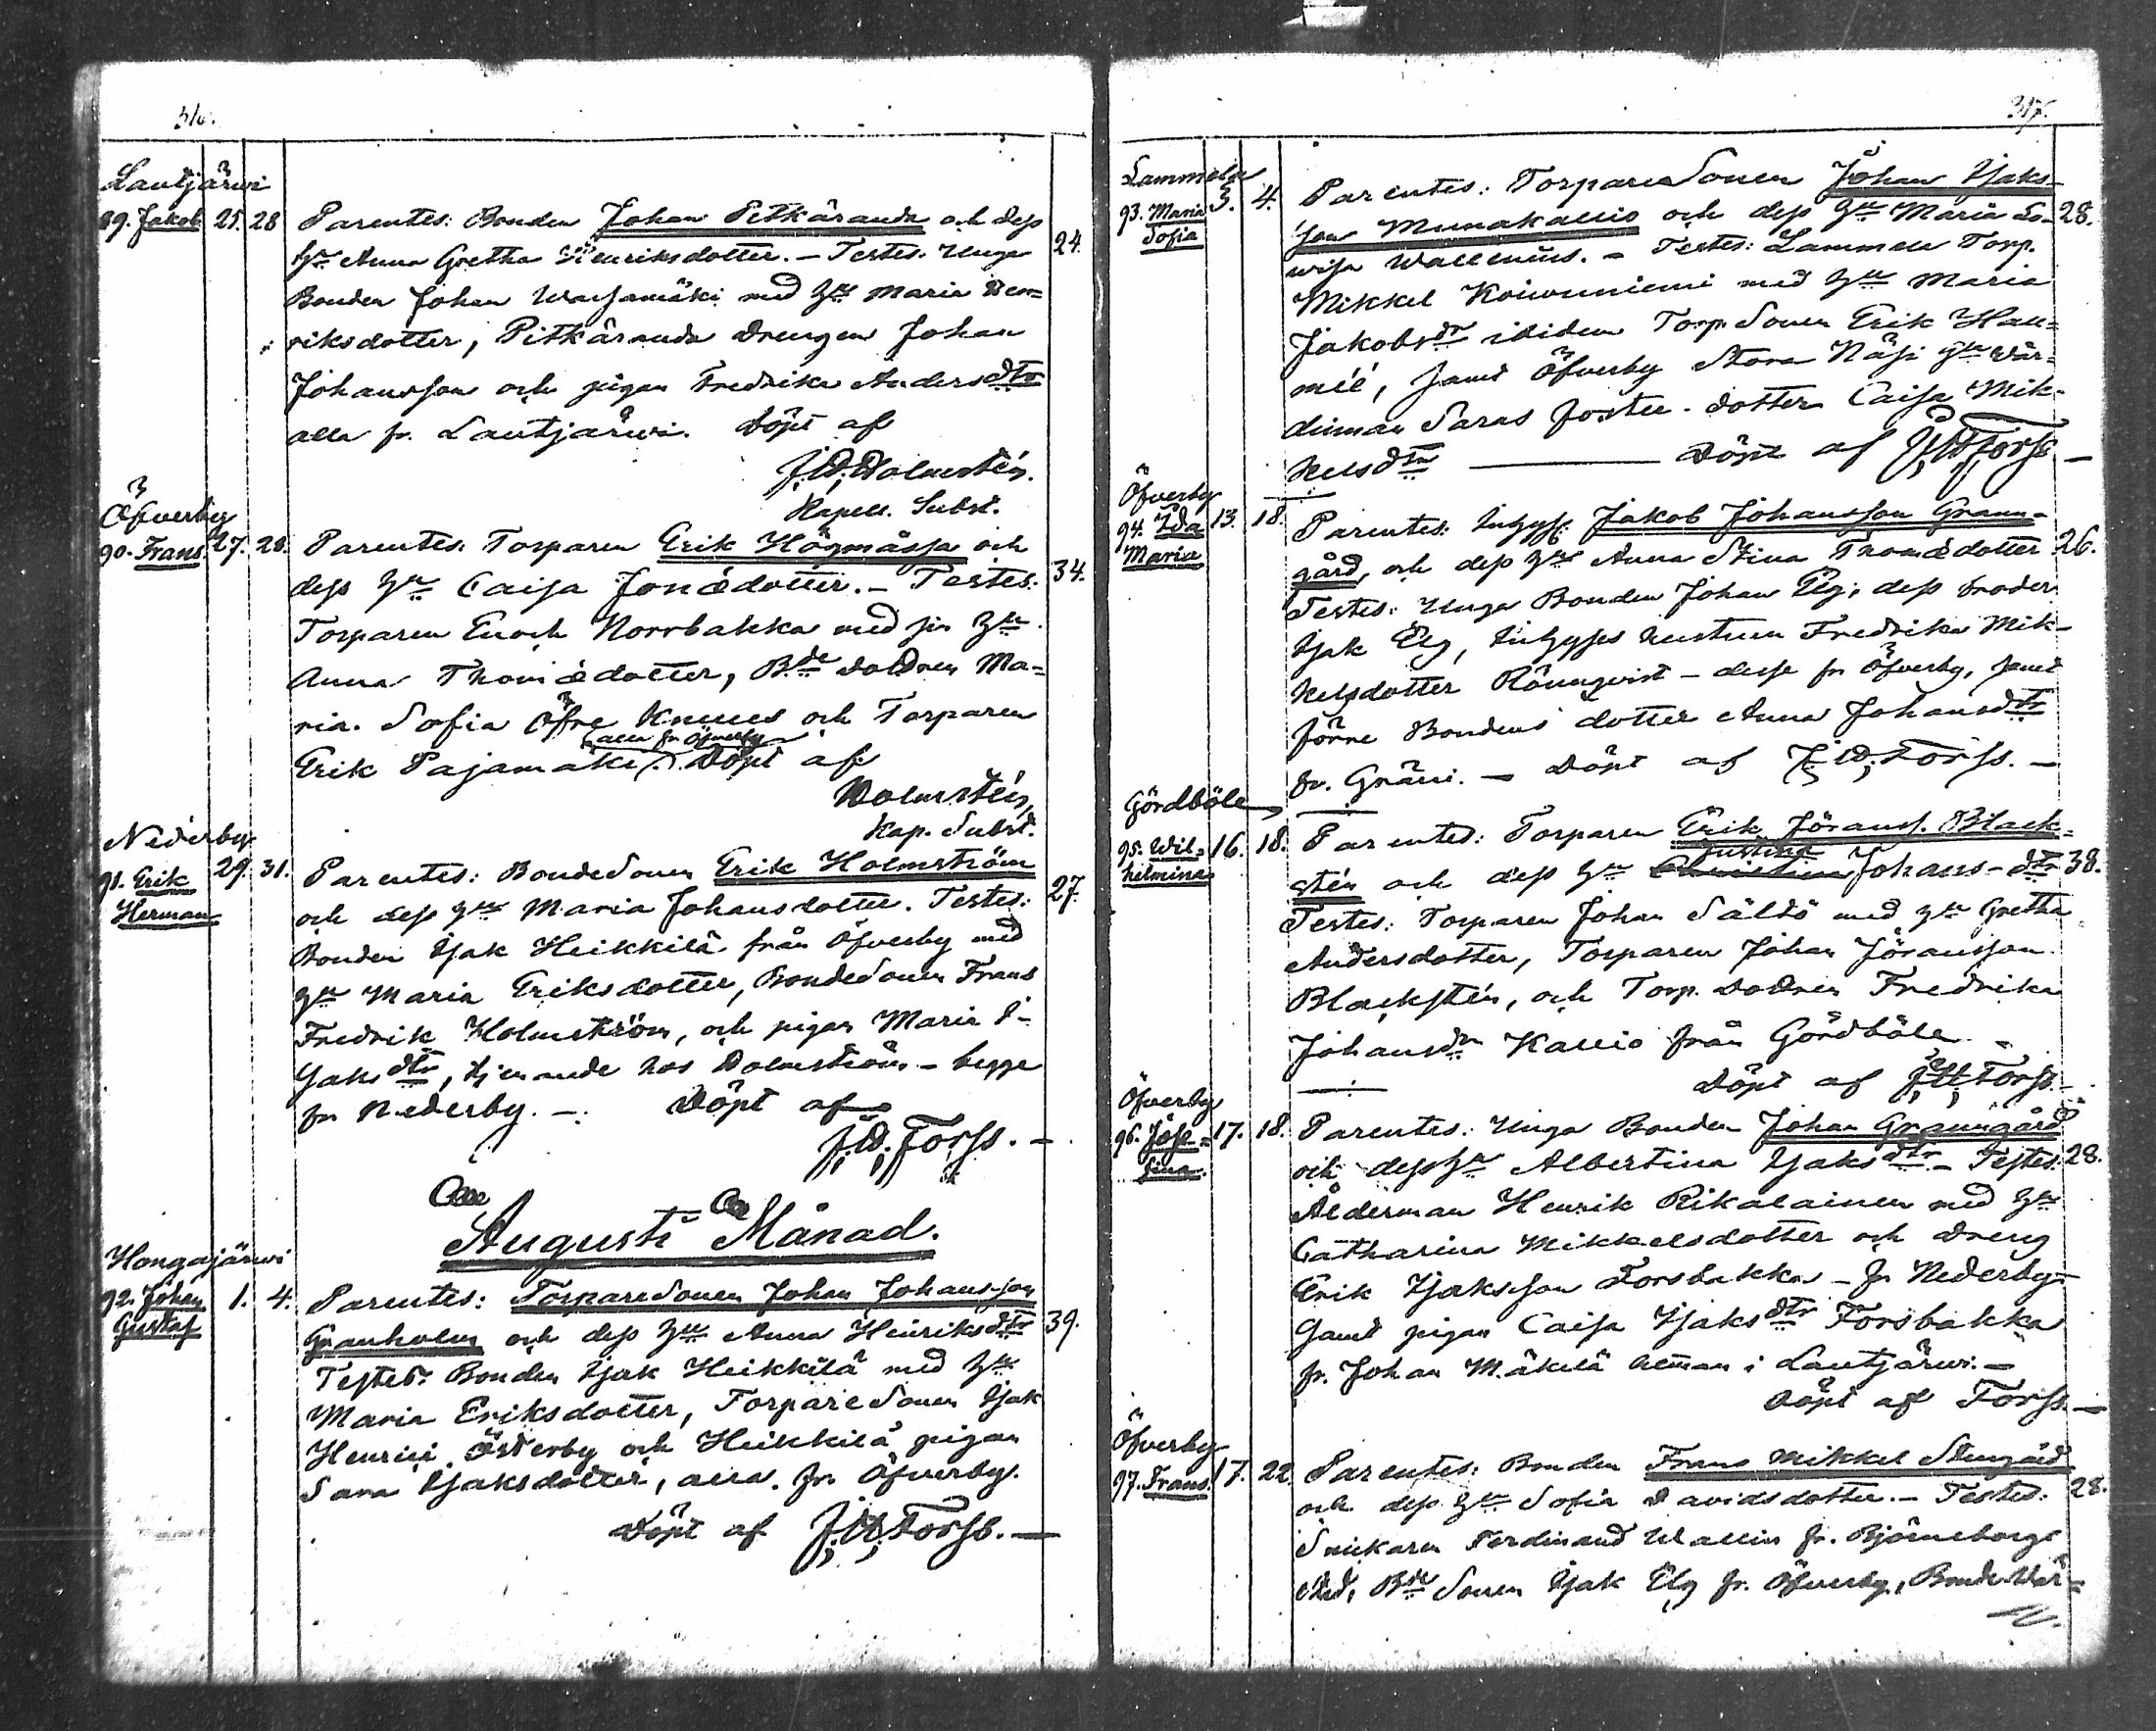 316.
Lautjärwi
89. Jakob 25. 28 Parentes: Bonden Johan Pitkäranda och dess
hu Anna Gretha Henriksdotter. – Testes. Unga 24.
Bonden Johan Warsamäki med hu Maria Hen=
riksdotter, Pitkäranda drengen Johan
Johansson och pigan Fredrika Andersdtr
alla fr. Lautjärwi. Döpt af
J. W. Holmstén.
Kapell. Subst.
Öfverby
90. Frans 27. 28. Parentes. Torparen Erik Högmåssa och
dess hu Caisa Jonædotter. – Testes. 34.
Torparen Enoch Norrbakka med sin hu
Anna Thomædotter, Bde dottren Ma=
ria Sofia Öfre Knuus och Torparen
Erik Pajamäki (alla fr Öfverby). Döpt af
Holmstén,
Kap. Subst.
Nederby
91. Erik Herman 29. 31. Parentes: Bondesonen Erik Holmström
och dess hu Maria Johansdotter. Testes: 27.
Bonden Isak Heikkilä från Öfverby med
hu Maria Eriksdotter, Bondesonen Frans
Fredrik Holmström, och pigan Maria I-
saksdtr, tjenande hos Holmström – begge
fr Nederby. –. Döpt af
J. W. Forss. –
Augusti Månad.
Hongajärwi
92. Johan Gustaf 1. 4. Parentes: Torparesonen Johan Johansson
Granholm och dess hu Anna Henriksdtr 39.
Testes. Bonden Isak Heikkilä med hu
Maria Eriksdotter, Torparesonen Isak
Henrici Österby och Heikkilä pigan
Sara Isaksdotter, alla fr Öfverby.
Döpt af J. W. Forss. –
317.
Lammela
93. Maria Sofia 3. 4. Parentes: Torparesonen Johan Isaks-
son Munakallio och dess hu Maria Lo- 28.
wisa Wallenius. – Testes: Lammela Torp.
Mikkel Koiwuniemi med hu Maria
Jakobsdr ibidem Torp. Sonen Erik
samt Öfverby Stora Näsi gu Wär=
dinnan Saras foster-dotter Caisa Mik-
kelsdtr — Döpt af J. W. Forss –
Öfverby
94. Ida Maria 13. 18. Parentes: Inhyss. Jakob Johansson Grann-
gård, och dess hu Anna Stina Thomædotter 26.
Testes: Unga Bonden Johan Elg, dess broder
Isak Elg, Inhyses hustrun Fredrika Mik-
kelsdotter Rönnqvist – desse fr Öfverby, samt
förre Bondens dotter Anna Johansdtr
fr. Gräni. – Döpt af J. W. Forss. –
Gördböle
95. Wil=helmina 16. 18. Parentes: Torparen Erik Jöranss. Black=
stén och dess hu Justina Johans-dtr 38.
Testes. Torparen Johan Sältö med hu Gretha
Andersdotter, Torparen Johan Jöransson
Blackstén, och Torp. dottren Fredrika
Johansdr Kallio från Gördböle.
Döpt af J. W. Forss. –
Öfverby
96. Jose=fina. 17. 18. Parentes: Unga Bonden Johan Granngård
och dess hu Albertina Isaksdtr – Testes: 28.
Ålderman Henrik Rikalainen med hu
Catharina Mikkelsdotter och dreng
Erik Isaksson Forsbakka – fr Nederby –
samt pigan Caisa Isaksdtr Forsbakka
fr. Johan Mäkilä heman i Lautjärwi. –
Döpt af Forss. –
Öfverby
97. Frans. 17. 22. Parentes: Bonden Frans Mikkel Stengård
och dess hu Sofia Davidsdotter. – Testes: 28.
Snickaren Ferdinand Wallin fr. Björneborgs
Stad, Bde Sonen Isak Elg fr. Öfverby, Bonde-Wär=